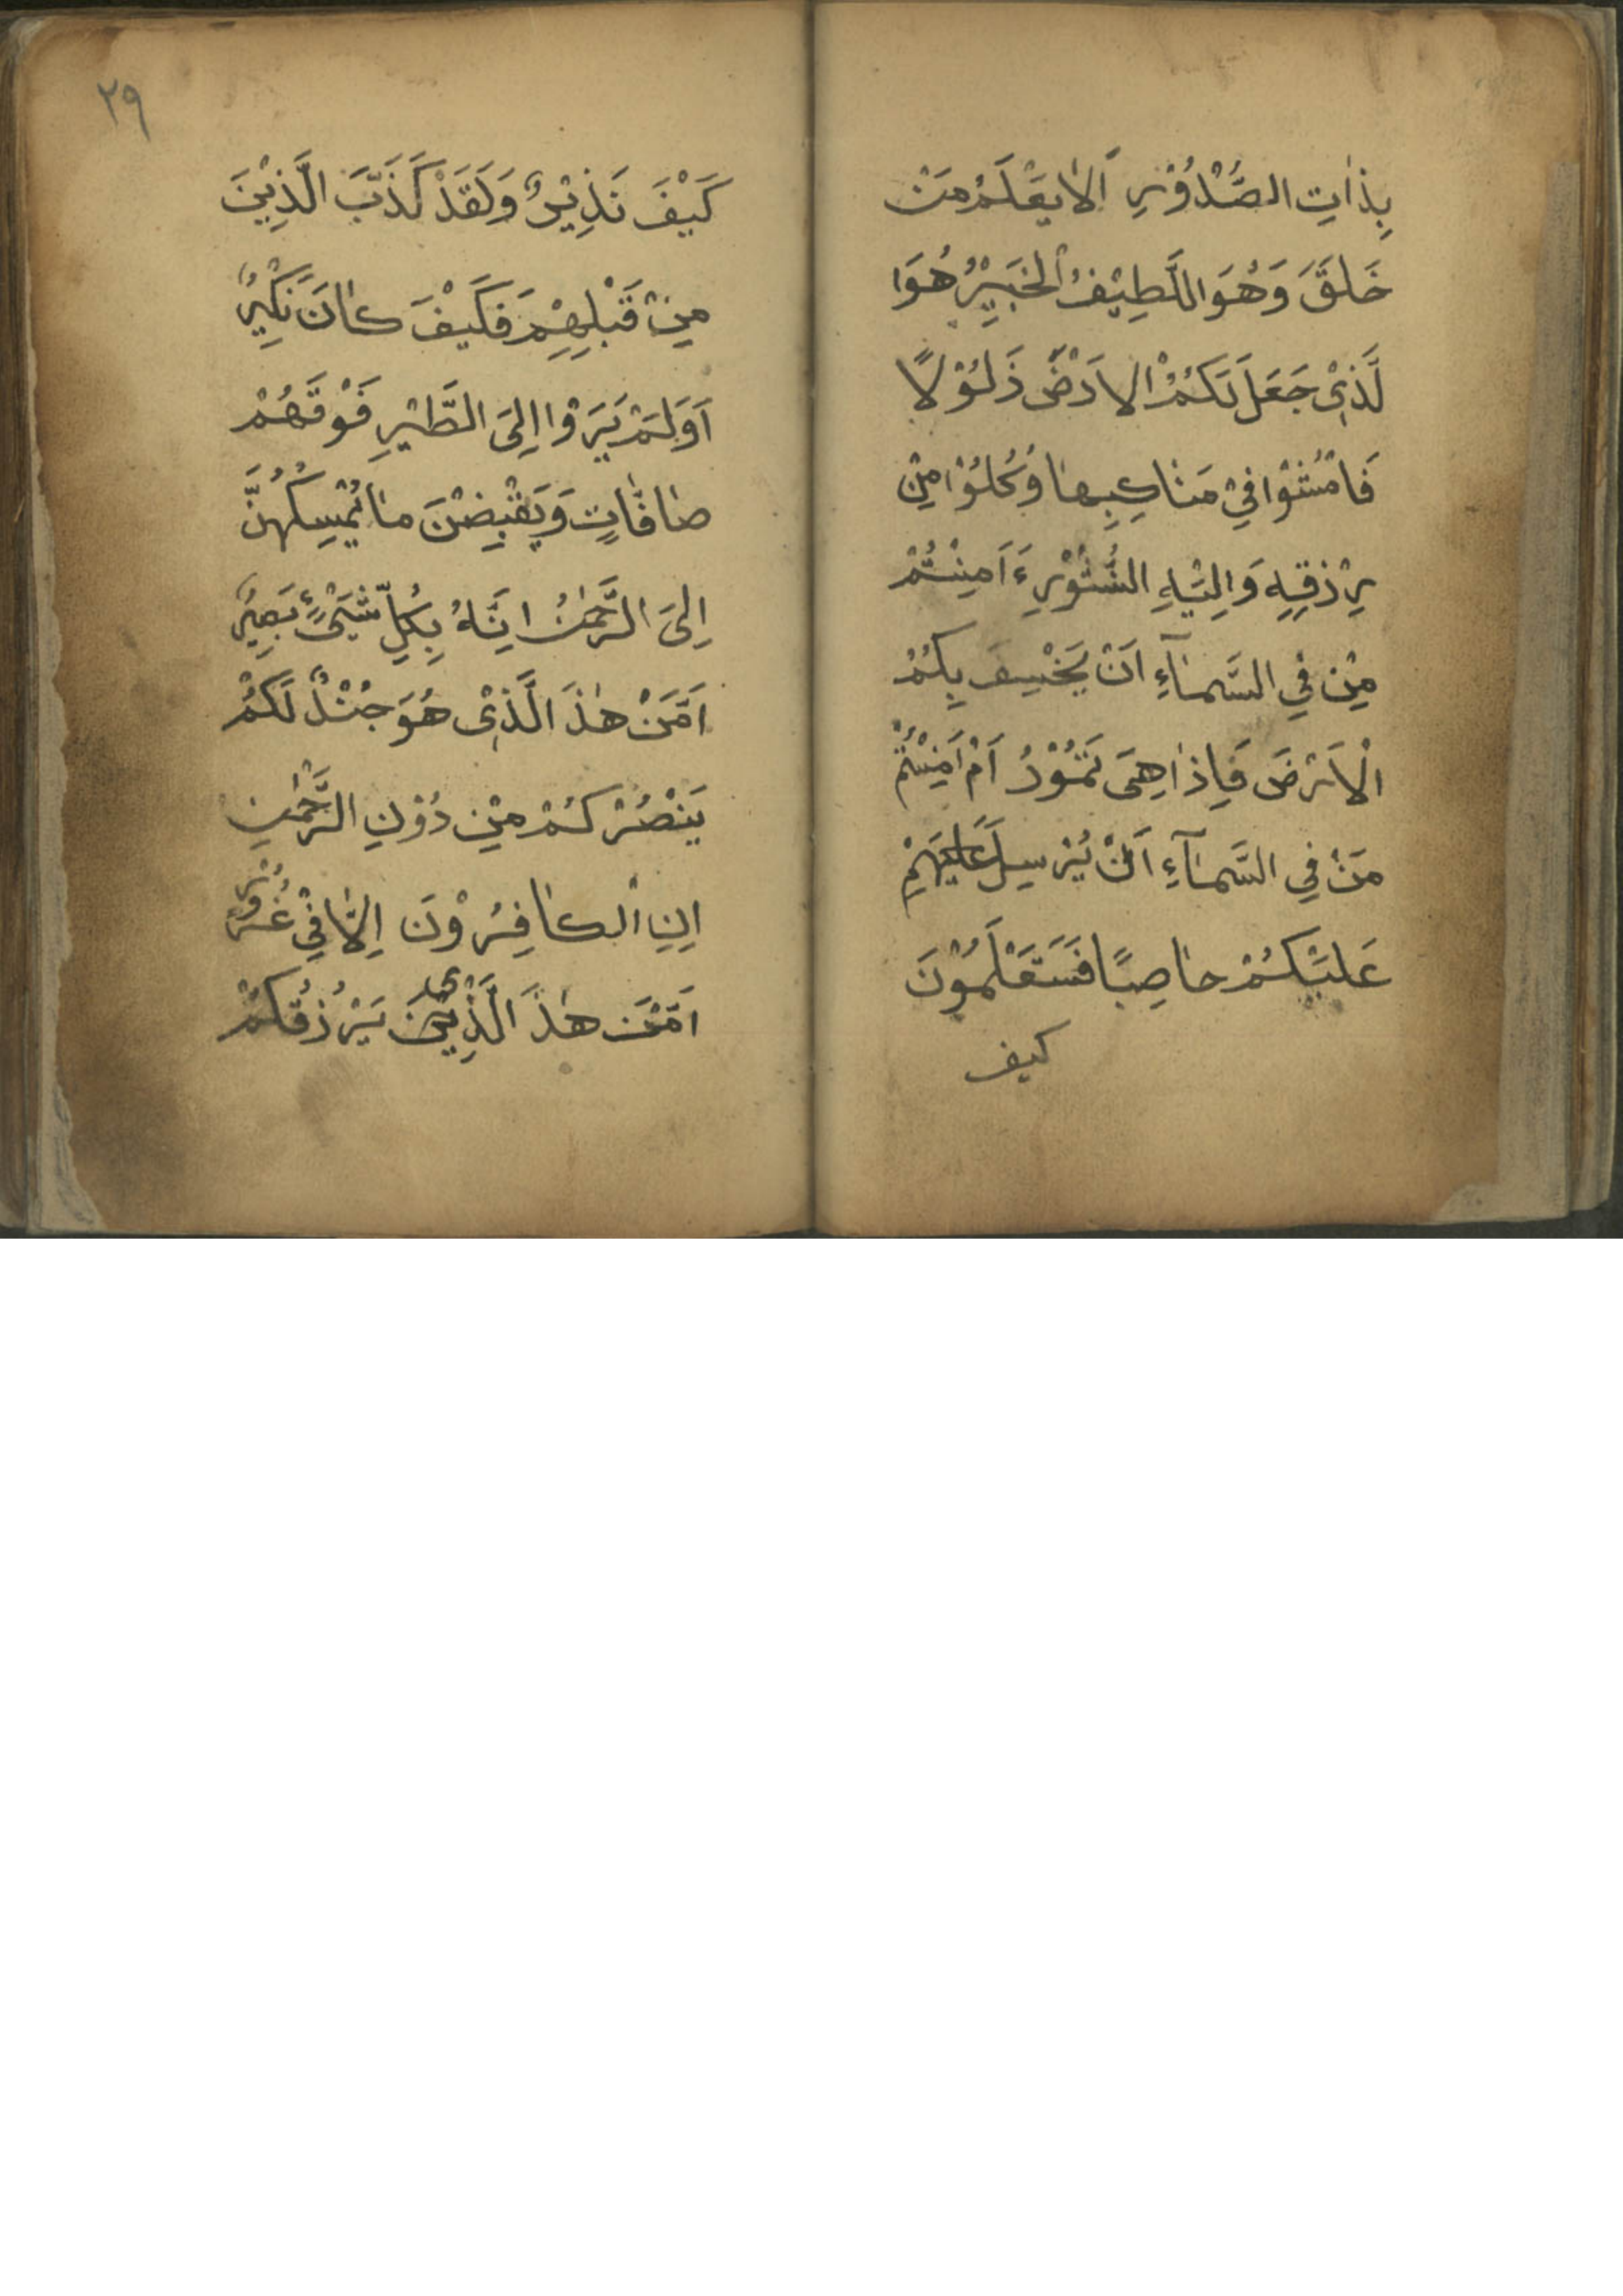 بِذَاتِ الصُّدُوْرِ اَلَا يَعْلَمُ مَنْ
خَلَقَ وَهُوَ اللَّطِيْفُ الْخَبِيْرُ هُوَا
لَّذِيْ جَعَلَ لَكُمْ الْاَرْضَ ذَلُوْلًا
فَامْشُوْا فِيْ مَنَاكِبِهَا وَكُلُوْا مِنْ
رِزْقِهِ وَاِلَيْهِ النُّشُوْرِ ءَاَمِنْتُمْ
مِنْ فِي السَّمَآءِ اَنْ يَخْسِفَ بِكُمْ
الْاَرْضَ فَاِذَا هِيَ تَمُوْرُ اَمْ اَمِنْتُمْ
مَنْ فِي السَّمَآءِ اَنْ يُرْسِلَ عَلَيْهِمْ
عَلَيْكُمْ حَاصِبًا فَسَتَعْلَمُوْنَ
كيف
٢٩
كَيْفَ نَذِيْرٌ وَلَقَدْ كَذَّبَ الَّذِيْنَ
مِنْ قَبْلِهِمْ فَكَيْفَ كَانَ نَكِيْرٌ
اَوَلَمْ يَرَوْا اِلَى الطَّيْرِ فَوْقَهُمْ
صَافَّاتٍ وَيَقْبِضْنَ مَا يُمْسِكُهُنَّ
اِلَى الرَّحْمٰنُ اِنَّهُ بِكُلِّ شَيْءٍ بَصِيْرٌ
اَمَّنْ هٰذَ الَّذِيْ هُوَ جُنْدٌ لَكُمْ
يَنْصُرْكُمْ مِنْ دُوْنِ الرَّحْمٰنِ
اِنِ الْكَافِرُوْنَ اِلَّا فِيْ غُرُوْرٍ
اَمَّنْ هٰذَ الَّذِيْ يَرْزُقُكُمْ